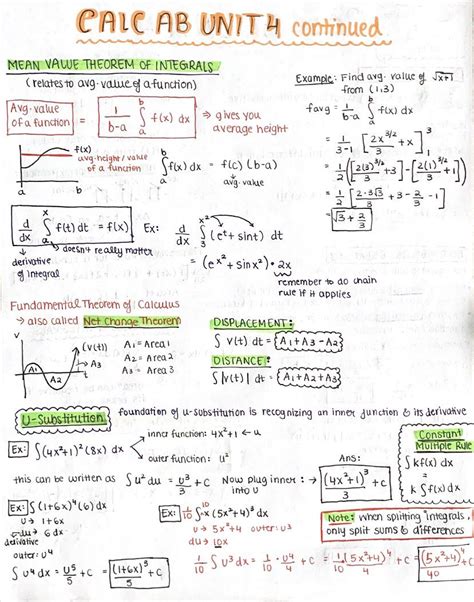 CALC AB UNIT 4 continued
MEAN VALUE THEOREM OF INTEGRALS
(relates to avg. value of a function)
Avg. value of a function = 1/(b-a) ∫_a^b f(x) dx → gives you average height
f(x)
avg. height/value of a function
a b
∫_a^b f(x) dx = f(c) (b-a)
↳ avg. value
Example: Find avg. value of √x+1 from (1,3)
favg = 1/(b-a) ∫_a^b f(x) dx
= 1/(3-1) [2x^(3/2)/3 + x]_1^3
= 1/2 ([2(3)^(3/2)/3 + 3] - [2(1)^(3/2)/3 + 1])
= 1/2 [2·3√3/3 + 3 - 2/3 - 1]
= √3 + 2/3
d/dx ∫_a^x f(t) dt = f(x)
↳ doesn't really matter
derivative of integral
Ex: d/dx ∫_3^(x²) (e^t + sint) dt
= (e^(x²) + sinx²) • 2x
remember to do chain rule if it applies
Fundamental Theorem of Calculus
→ also called Net Change Theorem
(v(t))
A1 A2 A3
A1 = Area 1
A2 = Area 2
A3 = Area 3
DISPLACEMENT:
∫ v(t) dt = A1+A3-A2
DISTANCE:
∫ |v(t)| dt = A1+A2+A3
U-Substitution: foundation of u-substitution is recognizing an inner function & its derivative
Ex: ∫(4x²+1)² (8x) dx
inner function: 4x²+1 ← u
outer function: u²
this can be written as ∫u² du = u³/3 + C
Now plug inner into u
Ans:
(4x²+1)³/3 + C
Constant Multiple Rule
∫ kf(x) dx
=
k ∫f(x) dx
Ex: ∫(1+6x)⁴ (6) dx
u → 1+6x
du → 6
derivative
outer: u⁴
∫u⁴ du = u⁵/5 + C = (1+6x)⁵/5 + C
Ex: 10/10 ∫ x (5x²+4)³ dx
u → 5x²+4 outer: u³
du → 10x
1/10 ∫ u³ dx = 1/10 · u⁴/4 + C = 1/10 (5x²+4)⁴/4 + C = (5x²+4)⁴/40 + C
Note: when splitting integrals, only split sums & differences